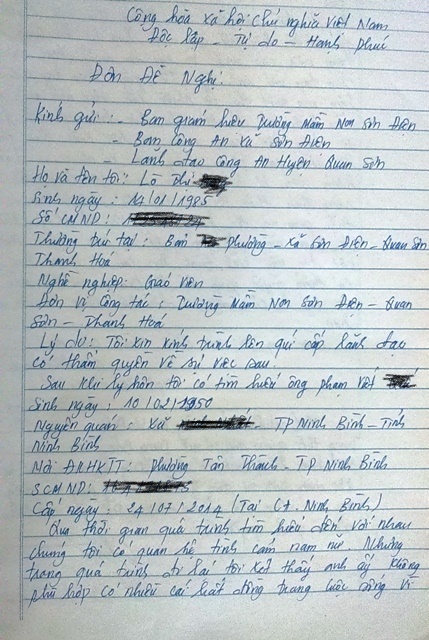 Cộng hòa xã hội chủ nghĩa Việt Nam
Độc lập - Tự do - Hạnh phúc
Đơn Đề Nghị
Kính gửi: - Ban giám hiệu Trường Mầm Non Sơn Điện
- Ban Công An Xã Sơn Điện
- Lãnh đạo Công An Huyện Quan Sơn
Họ và tên tôi: Lò Thị
Sinh ngày: 12/01/1985
Số CMND:
Thường trú tại: Bản Phường - Xã Sơn Điện - Quan Sơn
Thanh Hoá
Nghề nghiệp: Giáo viên
Đơn vị công tác: Trường Mầm Non Sơn Điện - Quan
Sơn - Thanh Hoá
Lý do: Tôi xin kính trình lên quí cấp lãnh đạo
có thẩm quyền về sự việc sau.
Sau khi ly hôn tôi có tìm hiểu ông Phạm Việt
Sinh ngày: 10/02/1950
Nguyên quán: Xã - TP Ninh Bình - Tỉnh
Ninh Bình
Nơi ĐKHKTT: phường Tân Thành - TP Ninh Bình
SCMND:
Cấp ngày: 24/07/2014 (Tại CA. Ninh Bình)
Qua thời gian quá trình tìm hiểu đến với nhau
chúng tôi có quan hệ tình cảm nam nữ. Nhưng
trong quá trình đi lại tôi xét thấy anh ấy không
phù hợp có nhiều cái bất đồng trong cuộc sống vì